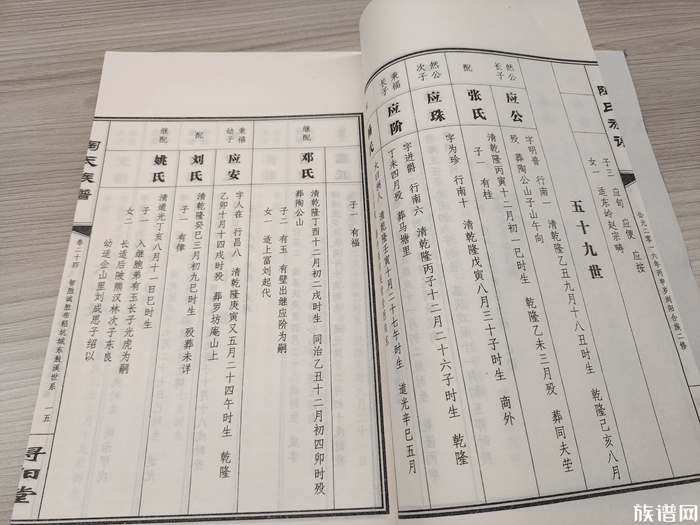 公元二零一六年丙申岁浏阳合族二修
子三 应旬 应便 应按
女一 适东岭赵宗畴
五十九世
然公长子
应公
字明普 行南一 清乾隆乙丑九月十八丑时生 乾隆己亥八月
殁 葬陶公山子山午向
配
张氏
清乾隆丙寅十二月初一巳时生 乾隆乙未三月殁 葬同夫茔
子一 有桂
然公次子
应珠
字为珍 行南十 清乾隆戊寅八月三十子时生 商外
秉福长子
应阶
字进爵 行南六 清乾隆丙子十二月二十六子时生 乾隆
丁未四月殁 葬马塘里
氏
清乾隆壬寅十月二十七午时生 道光辛巳五月
子一 有福
继配
邓氏
清乾隆丁酉十二月初二戌时生 同治乙丑十二月初四卯时殁
葬陶公山
子二 有玉 有壁出继应阶为嗣
女一 适上富刘起代
秉福幼子
应安
字人在 行昌八 清乾隆庚寅又五月二十四午时生 乾隆
乙卯十月十四戌时殁 葬罗坊庵山上
配
刘氏
清乾隆癸巳三月初九巳时生 殁葬未详
子一 有律
继配
姚氏
清道光丁亥八月十一日巳时生
子一 入继胞弟有玉长子光虎为嗣
女二 长适后陂熊汉林次子东良
幼适企山里刘成恩子绍以
陶氏族谱
卷二十四
智胜诚胜布稻坑城东敖溪世系
一五
浔阳堂
族谱网